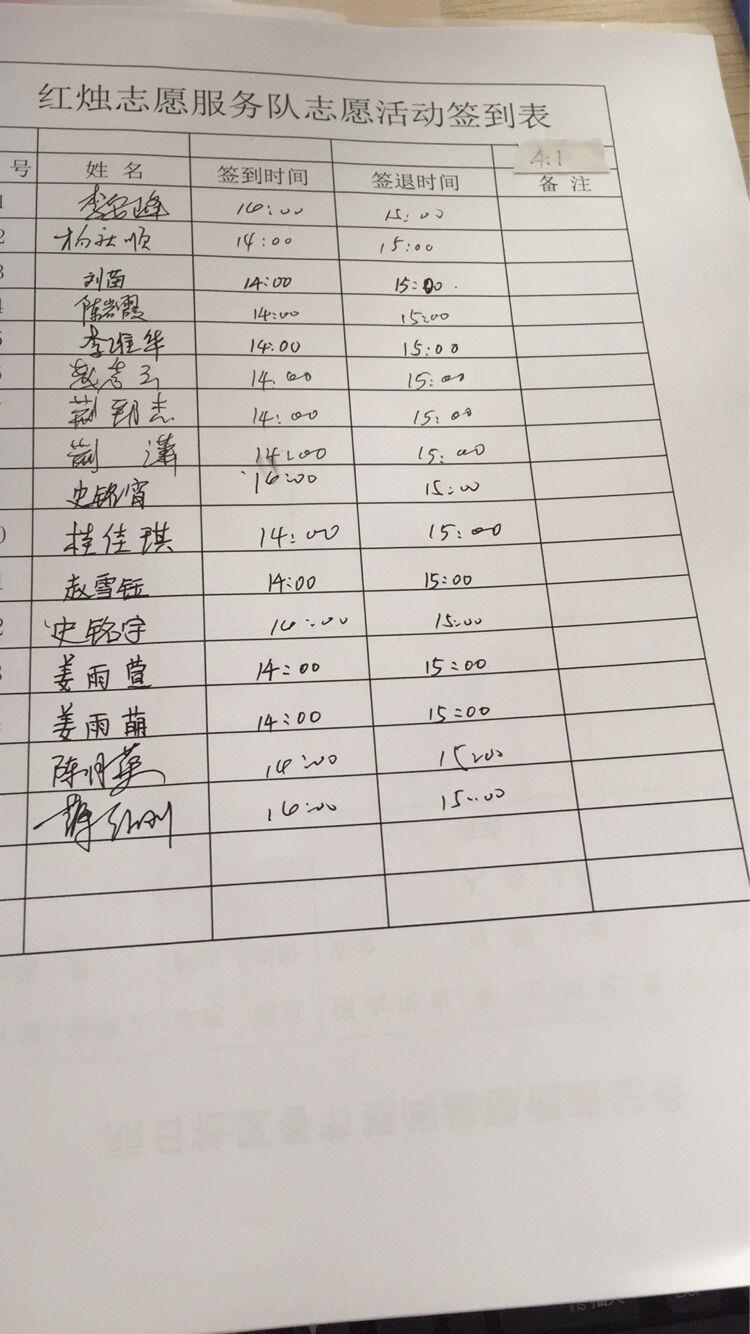 红烛志愿服务队志愿活动签到表
4.1
号 姓 名 签到时间 签退时间 备 注
1 16:00 15:00
2 杨秋顺 14:00 15:00
3 刘苗 14:00 15:00.
4 陈岩霞 14:00 15:00
5 李维华 14:00 15:00
6 14.00 15:00
荆 杰 14:00 15:00
荆 潇 14:00 15:00
史铭宵 16:00 15:00
0 桂佳琪 14:00 15:00
1 赵雪钰 14:00 15:00
2 史铭宇 16:00 15:00
3 姜雨萱 14:00 15:00
姜雨萌 14:00 15:00
陈月英 14:00 15:00
红刚 16:00 15:00